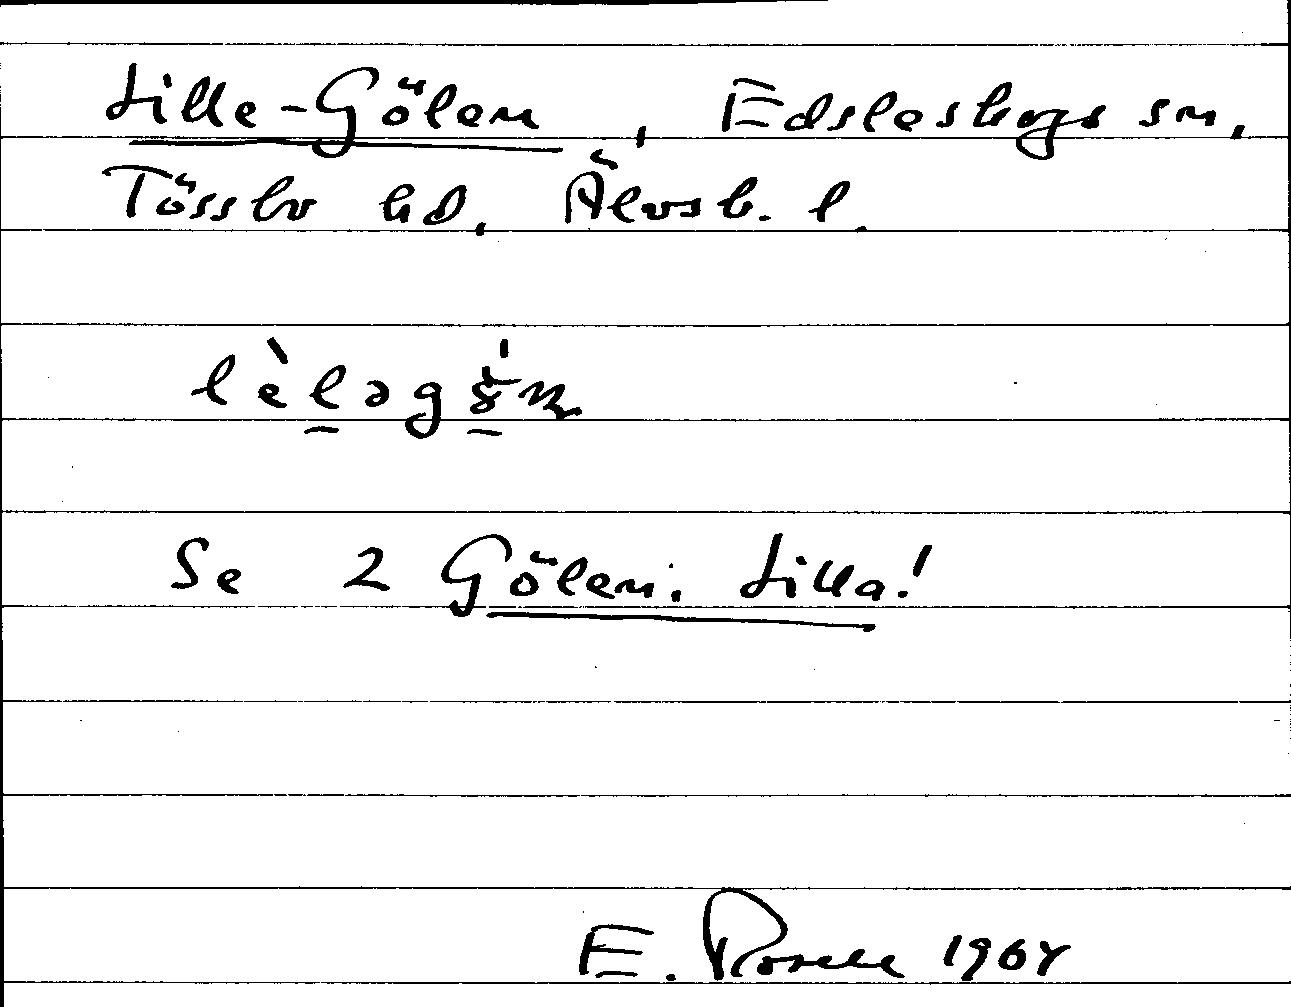 Lille-Gölen, Edsleskogs sn,
Tössbo hd, Älvsb. l.
Se 2 Gölen, Lilla!
E. Rosell 1964